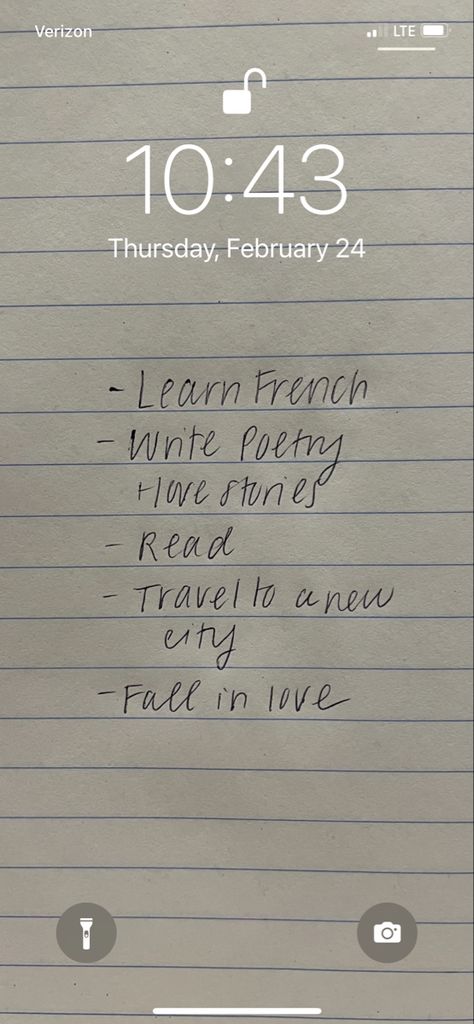 Verizon LTE
10:43
Thursday, February 24
- Learn French
- Write Poetry
+ love stories
- Read
- Travel to a new
city
- Fall in love